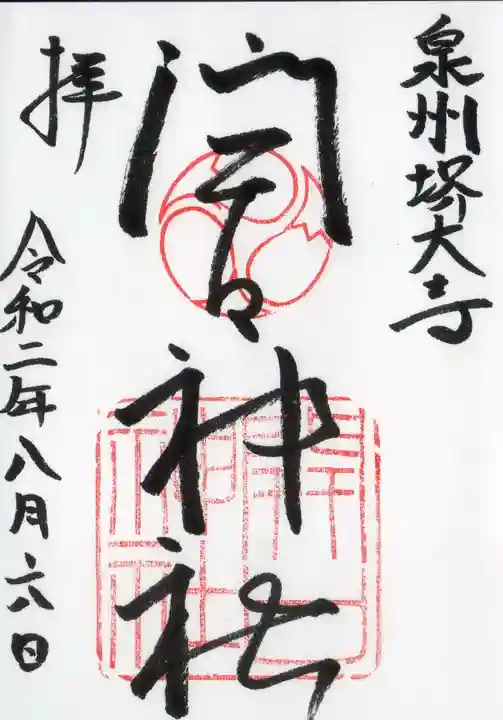 泉州堺大寺
開口神社
拝
令和二年八月六日